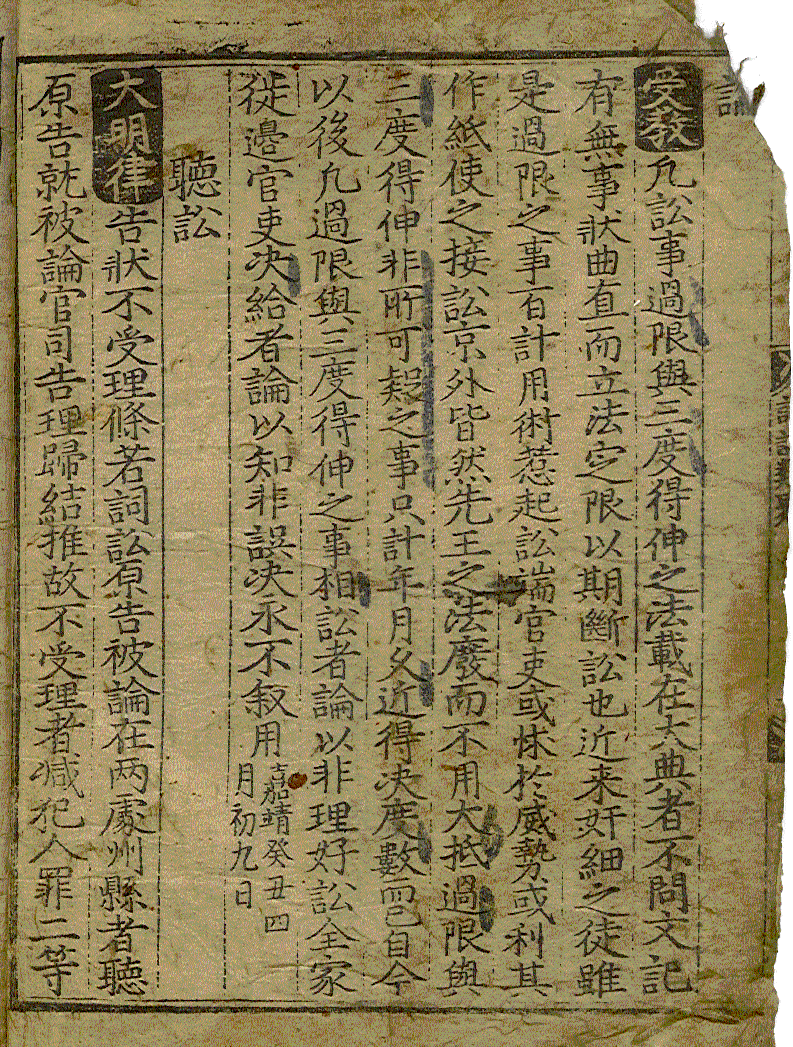 受敎凡訟事過限與三度得伸之法載在大典者不問文記
有無事狀曲直而立法定限以期斷訟也近来奸細之徒雖
是過限之事百計用術惹起訟端官吏或怵於威勢或利其
作紙使之接訟京外皆然先王之法廢而不用大抵過限與
三度得伸非所可疑之事只計年月久近得决度數而已自今
以後凡過限與三度得伸之事相訟者論以非理好訟全家
徙邊官吏决給者論以知非誤决永不叙用去嘉靖癸丑四
月初九日
聽訟
大明律告狀不受理條若詞訟原告被論在两處州縣者聽
原告就被論官司告理歸結推故不受理者减犯人罪二等